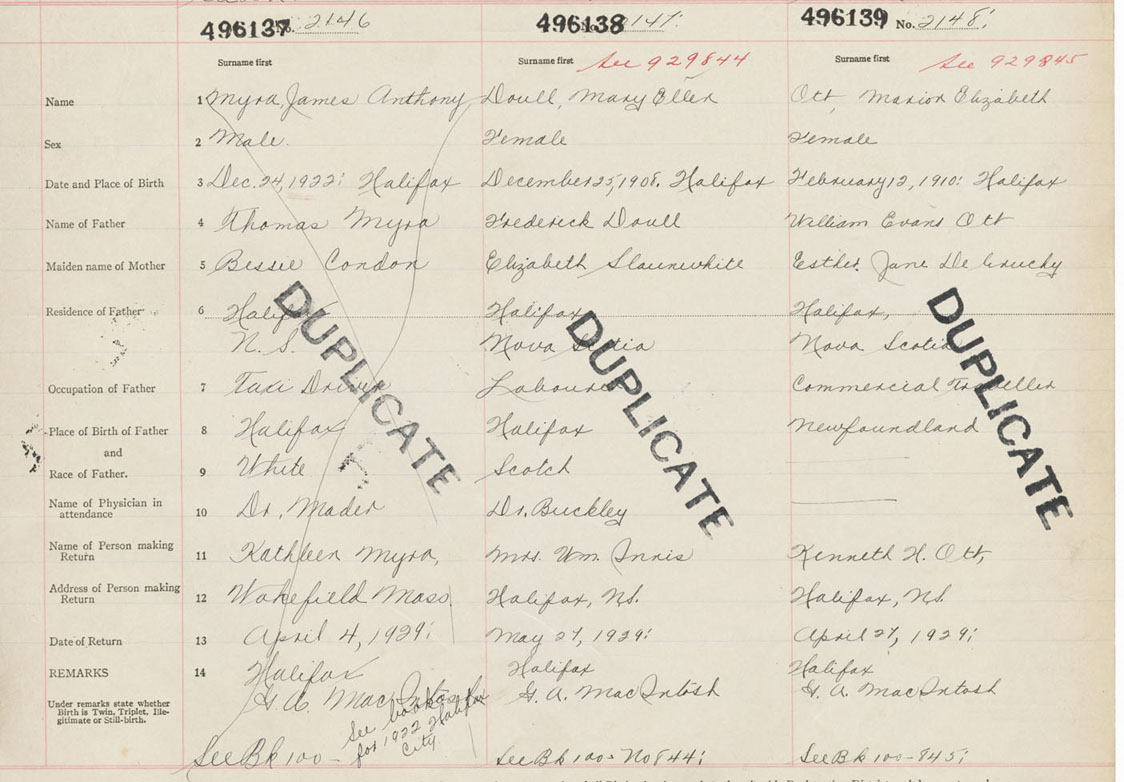 496137 No. 2146
496138 No. 2147:
496139 No. 2148:
Surname first
Surname first See 929844
Surname first See 929845
Name 1 Myra, James Anthony Doull, Mary Ellen Ott, Marion Elizabeth
Sex 2 Male. Female Female
Date and Place of Birth 3 Dec. 24, 1922: Halifax December 25, 1908. Halifax February 12, 1910: Halifax
Name of Father 4 Thomas Myra Frederick Doull William Evans Ott
Maiden name of Mother 5 Bessie Condon Elizabeth Slaunwhite Esther Jane De Gruchy
Residence of Father 6 Halifax Halifax, Halifax,
N. S. Nova Scotia Nova Scotia
Occupation of Father 7 Taxi Driver Labourer Commercial Traveller
Place of Birth of Father 8 Halifax Halifax Newfoundland
and
Race of Father. 9 White Scotch
Name of Physician in
attendance 10 Dr. Mader Dr. Buckley
Name of Person making
Return 11 Kathleen Myra, Mrs. Wm. Innis Kenneth H. Ott,
Address of Person making
Return 12 Wakefield Mass. Halifax, N.S. Halifax, N.S.
Date of Return 13 April 4, 1929: May 27, 1929: April 27, 1929:
REMARKS 14 Halifax Halifax Halifax
G. A. MacIntosh G. A. MacIntosh G. A. MacIntosh
Under remarks state whether
Birth is Twin, Triplet, Ille-
gitimate or Still-birth.
See books
for 1922 Halifax
City
See Bk 100- See Bk 100- No 844: See Bk 100-845:
DUPLICATE
DUPLICATE
DUPLICATE